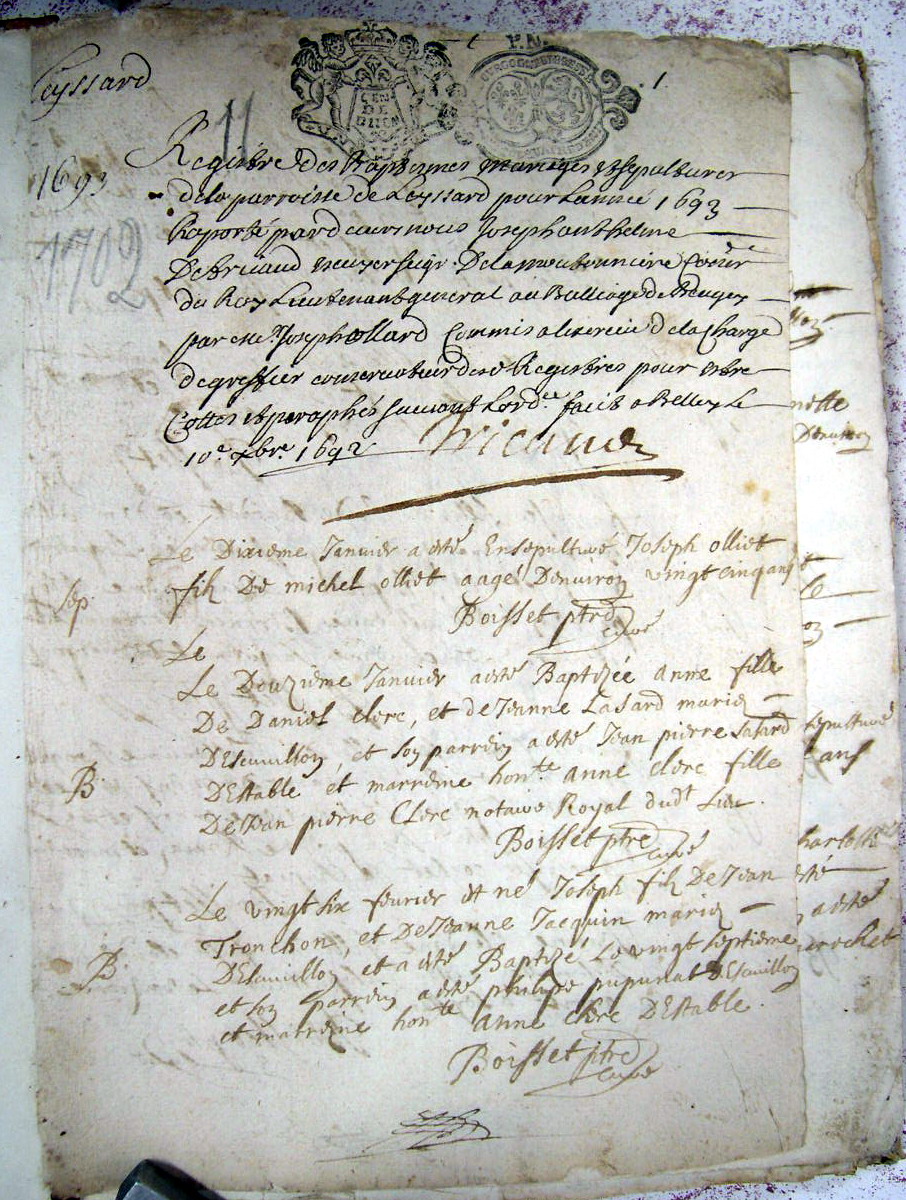 Leyssard
11
1693
1702
GEN
DE
1
Registre des Baptesmes mariages et sepultures
dela parroisse de Leyssard pour Lannee 1693
Raporté pardevant nous Joseph anthelme
Debriaud escuyer seigr. Delamoutonniere Coer
du Roy Lieutenant general au Balliage de Beugey
par Me Joseph ollard Commis alexercice dela Charge
de greffier conservateur desd Registres pour estre
Cottes et paraphés suivant Lordce faict a Belley Le
10e xbre 1692
Le Dixieme Janvier a esté Ensepulturé Joseph olliet
sep.
filz De michel olliet aagé Denviron vingt cinq ans
Boisset ptre
curé
Le
Le Douzième Janvier a esté Baptizée anne fille
De Daniel clerc, et de Jeanne Lasard mariez
DEscuvillon, et son parrein a esté Jean pierre Lasard
B.
DEstable et marreine honte. anne clerc fille
De Jean pierre Clerc notaire Royal dudt Lieu.
Boisset ptre
curé
Le vingt six fevrier et né Joseph filz De Jean
Tronchon, et De Jeanne Jacquin mariez
B.
DEscuvillon et a esté Baptizé Le vingt septieme
et son parrein a esté philipe pupunat DEscuvillon
et marreine honte anne clerc DEstable.
Boisset ptre
curé
sepulturé
ans
esté
a esté
crochet